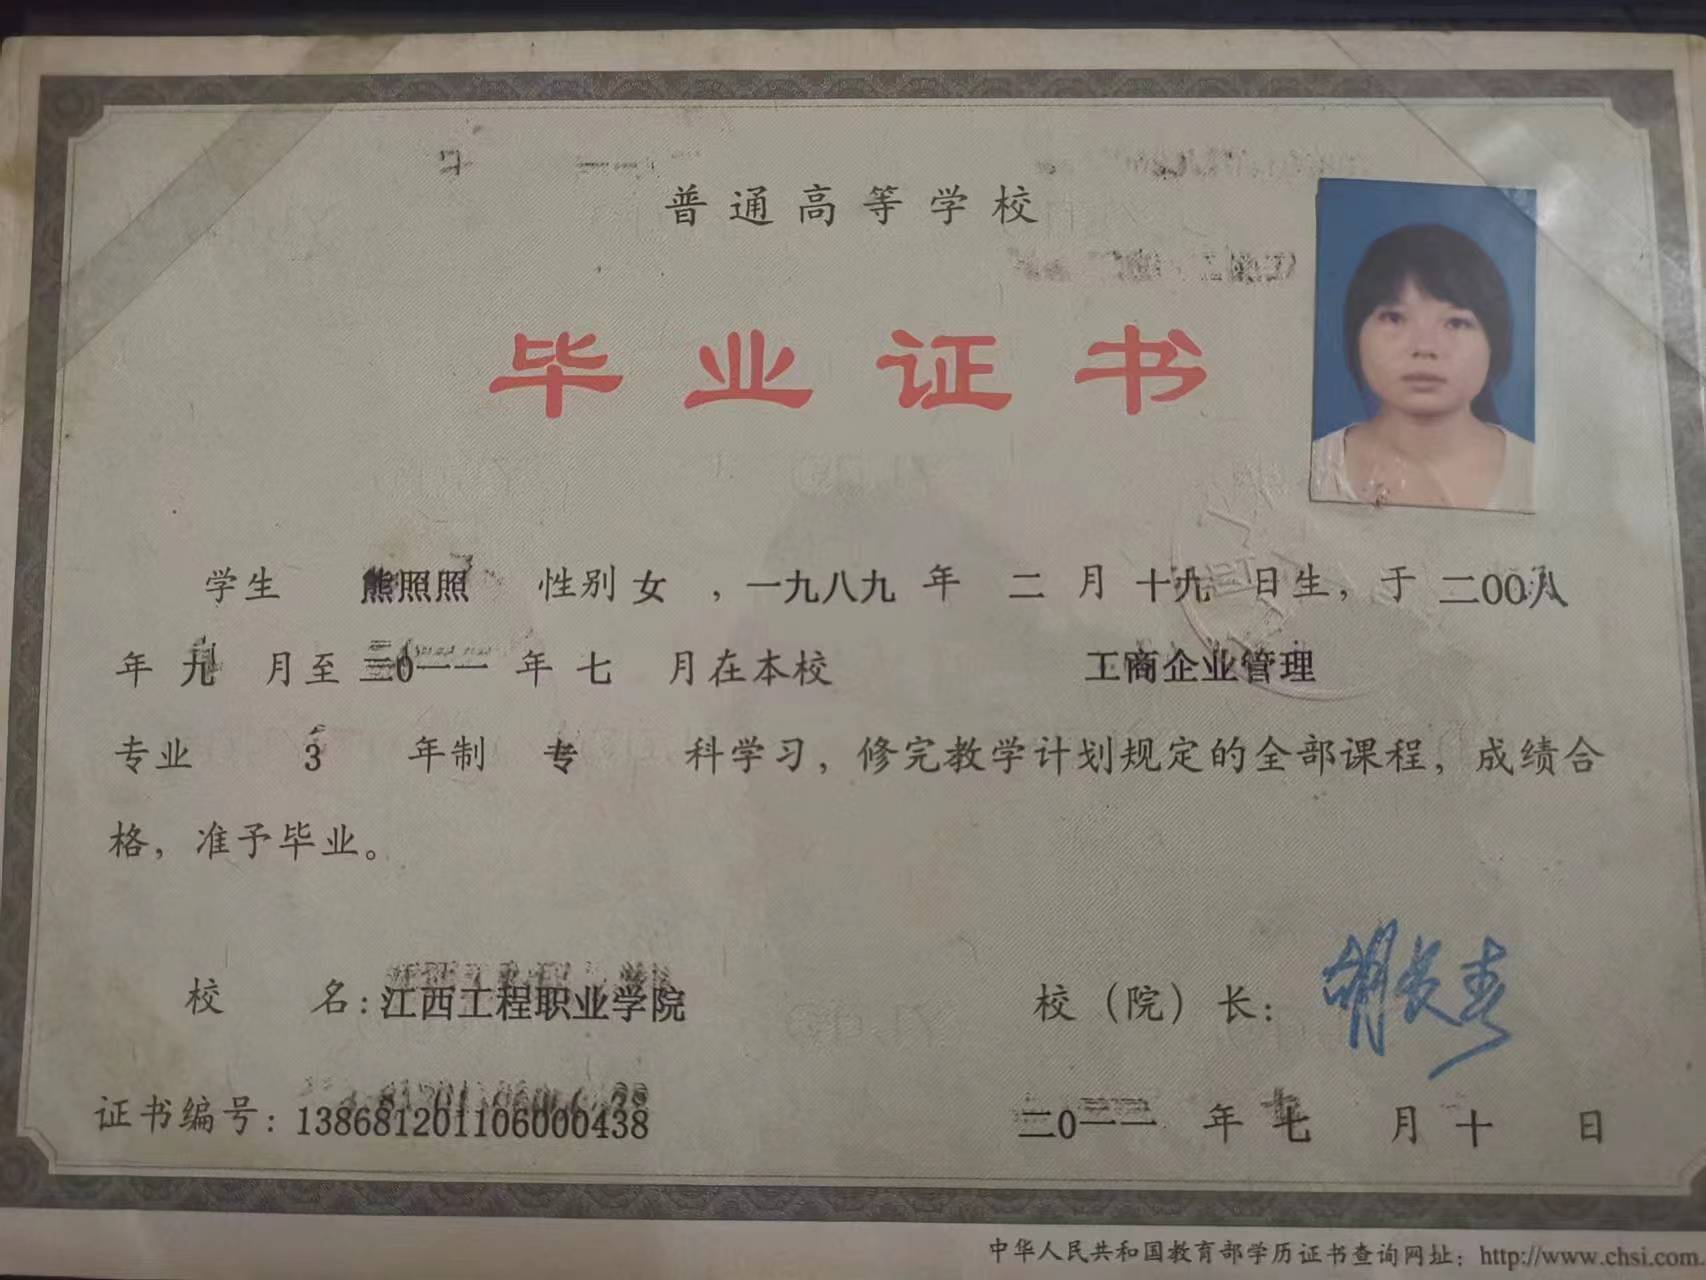 普通高等学校
毕业证书
学生 熊照照 性别 女 ，一九八九 年 二 月 十九 日生，于 二00八
年 九 月至 二0一一 年 七 月在本校 工商企业管理
专业 3 年制 专 科学习，修完教学计划规定的全部课程，成绩合
格，准予毕业。
校 名：江西工程职业学院 校（院）长：胡长春
证书编号：138681201106000438 二0一一 年 七 月 十 日
中华人民共和国教育部学历证书查询网址：http://www.chsi.com